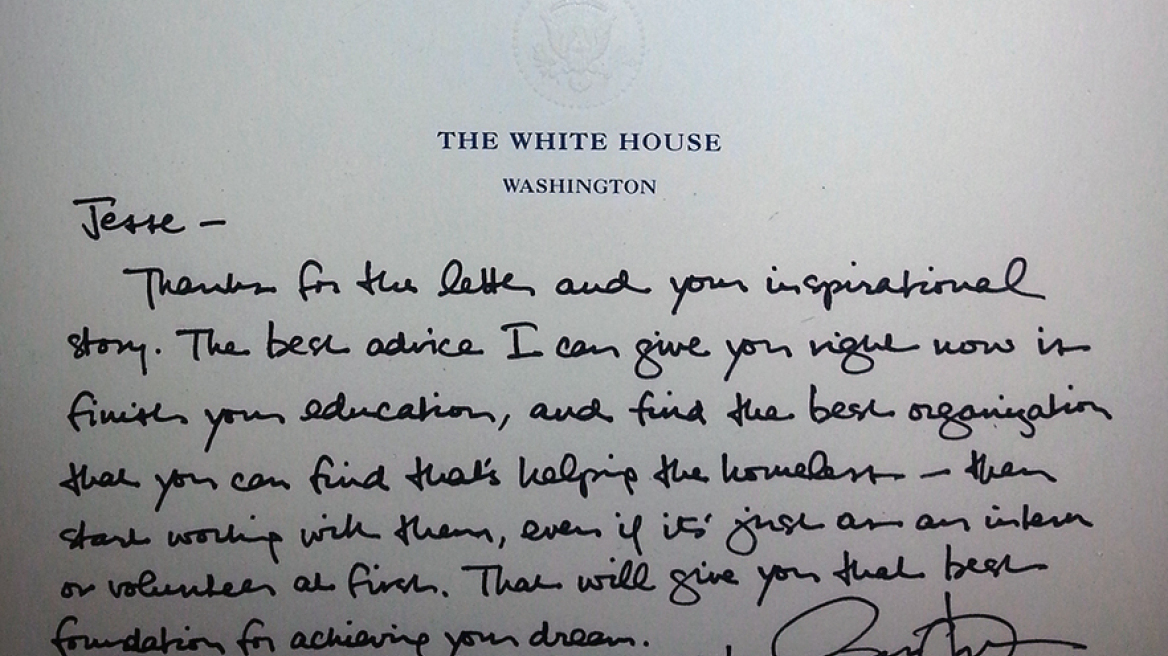 THE WHITE HOUSE
WASHINGTON
Jesse —
Thanks for the letter and your inspirational
story. The best advice I can give you right now is
finish your education, and find the best organization
that you can find that's helping the homeless — then
start working with them, even if it's just as an intern
or volunteer at first. That will give you that best
foundation for achieving your dream.